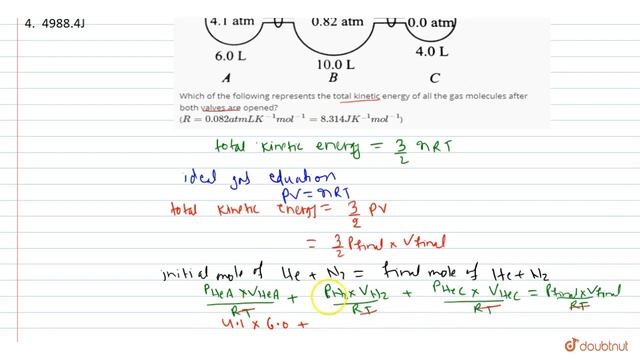 4. 4988.4J
4.1 atm 0.82 atm 0.0 atm
6.0 L 10.0 L 4.0 L
A B C
Which of the following represents the total kinetic energy of all the gas molecules after
both valves are opened?
(R = 0.082atmLK⁻¹mol⁻¹ = 8.314JK⁻¹mol⁻¹)
total kinetic energy = 3/2 nRT
ideal gas equation
PV = nRT
total kinetic energy = 3/2 PV
= 3/2 Pfinal × Vfinal
initial mole of He + N₂ = final mole of He + N₂
PHeA × VHeA / RT + PN₂ × VN₂ / RT + PHeC × VHeC / RT = Pfinal × Vfinal / RT
4.1 × 6.0 +
doubtnut